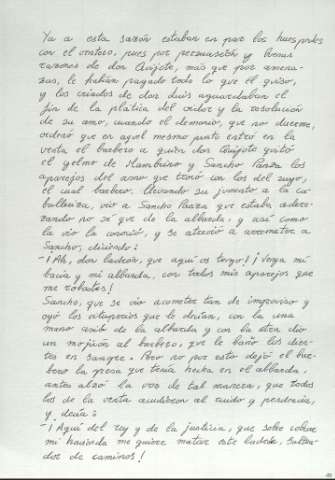 Ya a esta sazón estaban en paz los huéspedes
con el ventero, pues por persuasión y buenas
razones de don Quijote, más que por amena-
zas, le habían pagado todo lo que él quiso,
y los criados de don Luis aguardaban el
fin de la plática del oidor y la resolución
de su amo, cuando el demonio, que no duerme,
ordenó que en aquel mismo punto entró en la
venta el barbero a quien don Quijote quitó
el yelmo de Mambrino y Sancho Panza los
aparejos del asno que trocó con los del suyo,
el cual barbero, llevando su jumento a la ca-
balleriza, vio a Sancho Panza que estaba adere-
zando no sé que de la albarda, y así como
la vio la conoció, y se atrevió a arremeter a
Sancho, diciendo:
-¡Ah, don ladrón, que aquí os tengo! ¡Venga mi
bacía y mi albarda, con todos mis aparejos que
me robasteis!
Sancho, que se vio acometer tan de improviso y
oyó los vituperios que le decían, con la una
mano asió de la albarda y con la otra dio
un mojicón al barbero, que le bañó los dien-
tes en sangre. Pero no por esto dejó el bar-
bero la presa que tenía hecha en el albarda,
antes alzó la voz de tal manera, que todos
los de la venta acudieron al ruido y pendencia,
y decía:
-¡Aquí del rey y de la justicia, que sobre cobrar
mi hacienda me quiere matar este ladrón, saltea-
dor de caminos!